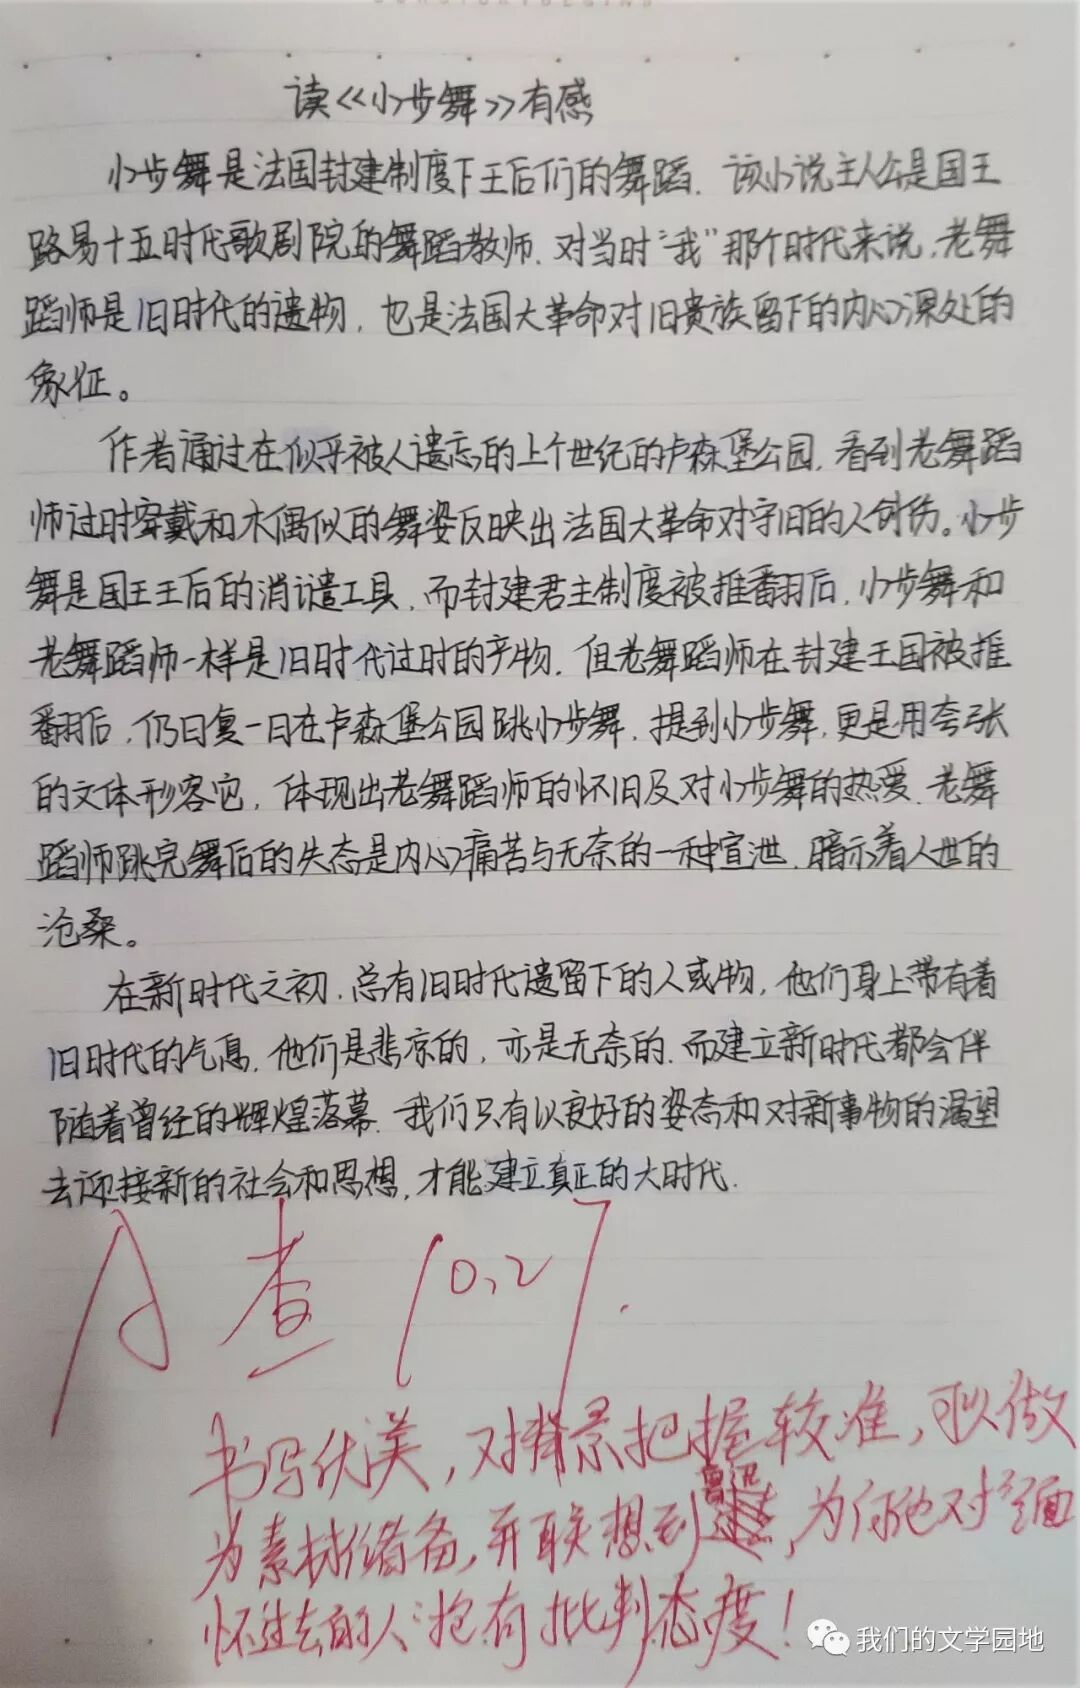 读《小步舞》有感
小步舞是法国封建制度下王后们的舞蹈.该小说主人公是国王
路易十五时代歌剧院的舞蹈教师.对当时“我”那个时代来说,老舞
蹈师是旧时代的遗物,也是法国大革命对旧贵族留下的内心深处的
象征。
作者通过在似乎被人遗忘的上个世纪的卢森堡公园,看到老舞蹈
师过时穿戴和木偶似的舞姿反映出法国大革命对守旧的人创伤。小步
舞是国王王后的消谴工具,而封建君主制度被推翻后,小步舞和
老舞蹈师一样是旧时代过时的产物.但老舞蹈师在封建王国被推
翻后,仍日复一日在卢森堡公园跳小步舞.提到小步舞,更是用夸张
的文体形容它,体现出老舞蹈师的怀旧及对小步舞的热爱.老舞
蹈师跳完舞后的失态是内心痛苦与无奈的一种宣泄.暗示着人世的
沧桑。
在新时代之初,总有旧时代遗留下的人或物,他们身上带有着
旧时代的气息.他们是悲凉的,亦是无奈的.而建立新时代都会伴
随着曾经的辉煌落幕.我们只有以良好的姿态和对新事物的渴望
去迎接新的社会和思想,才能建立真正的大时代.
A 查 10.27.
书写优美,对背景把握较准,可以做
为素材储备,并联想到鲁迅,为何他对缅
怀过去的人抱有批判态度!
我们的文学园地